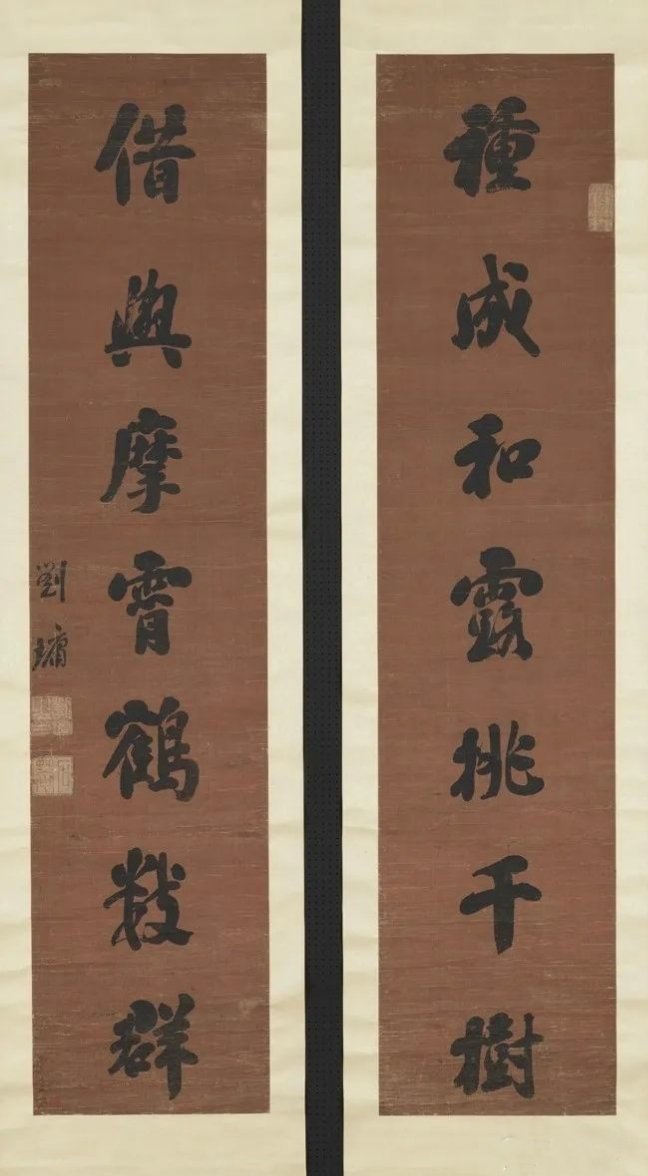 種成和露桃千樹
借與摩霄鶴數群
劉墉